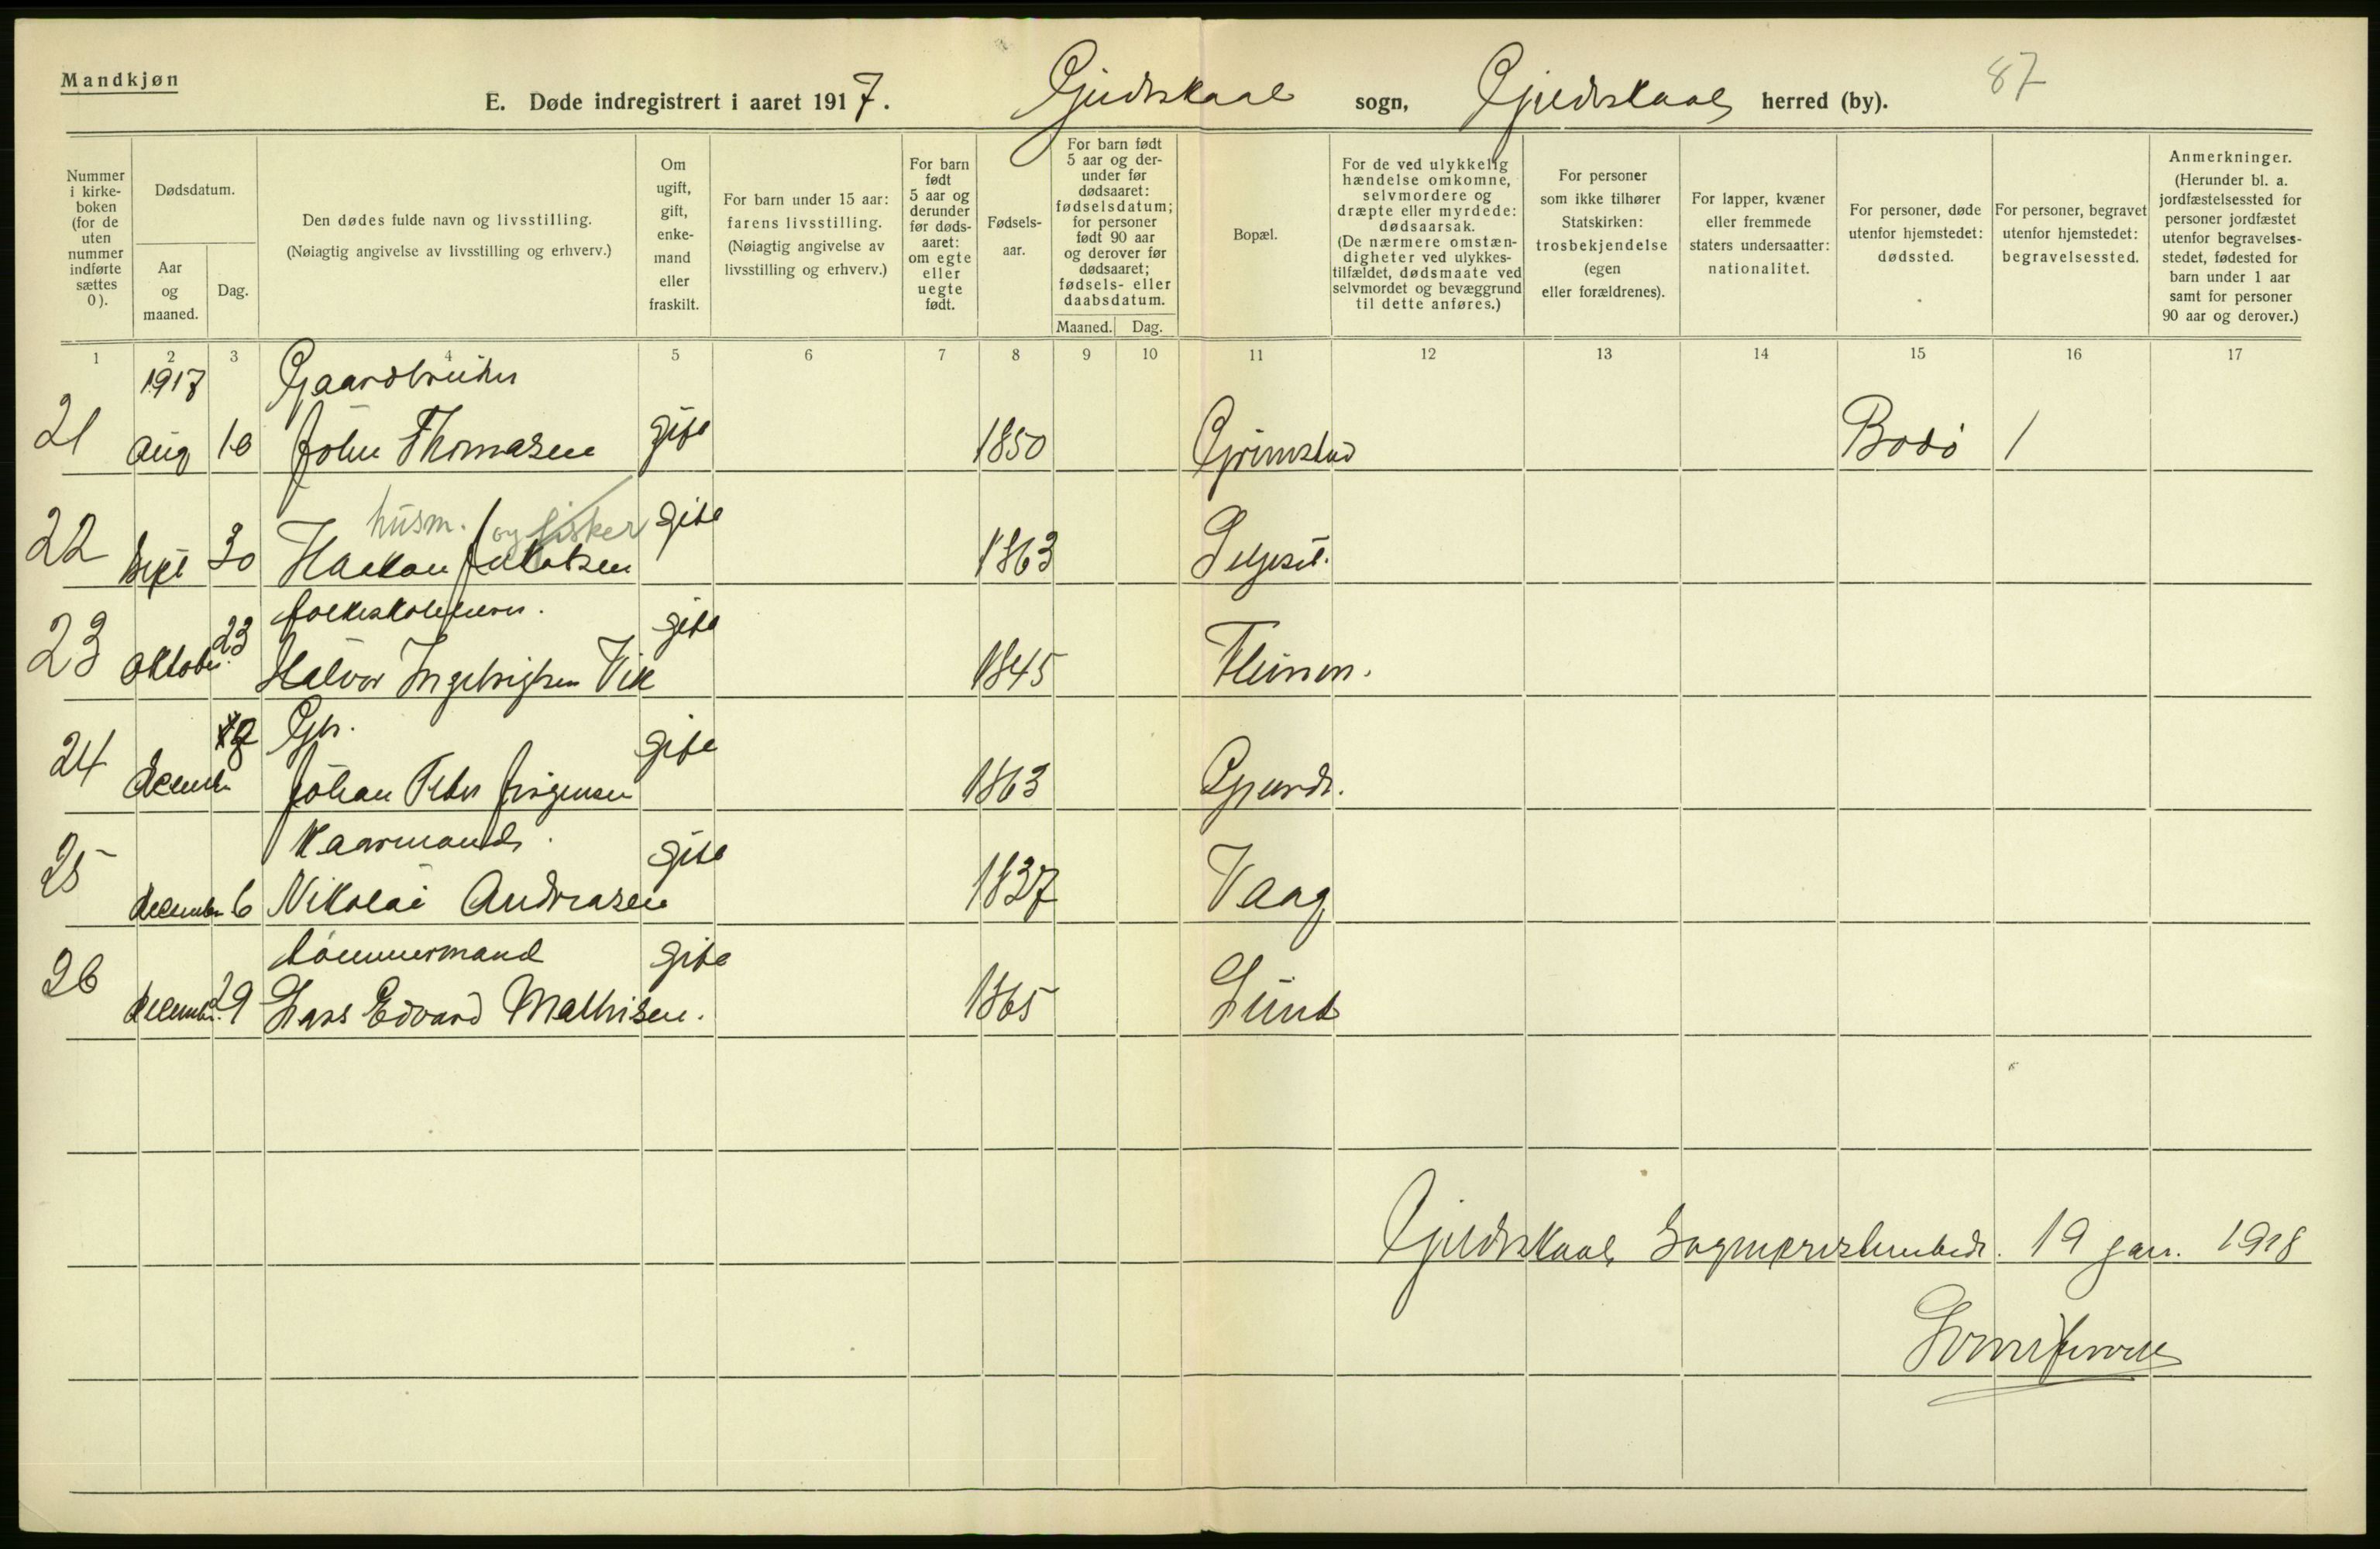 Mandkjøn
E. Døde indregistrert i aaret 1917. Gjildeskaal sogn, Gjildeskaal herred (by). 87
Nummer i kirke-boken (for de uten nummer indførte sættes 0).
Dødsdatum.
Aar og maaned.
Dag.
Den dødes fulde navn og livsstilling.
(Nøiagtig angivelse av livsstilling og erhverv.)
Om ugift, gift, enke-mand eller fraskilt.
For barn under 15 aar: farens livsstilling.
(Nøiagtig angivelse av livsstilling og erhverv.)
For barn født 5 aar og derunder før døds-aaret: om egte eller uegte født.
Fødsels-aar.
For barn født 5 aar og der-under før dødsaaret: fødselsdatum; for personer født 90 aar og derover før dødsaaret; fødsels- eller daabsdatum.
Maaned. Dag.
Bopæl.
For de ved ulykkelig hændelse omkomne, selvmordere og dræpte eller myrdede: dødsaarsak.
(De nærmere omstæn-digheter ved ulykkes-tilfældet, dødsmaate ved selvmordet og bevæggrund til dette anføres.)
For personer som ikke tilhører Statskirken: trosbekjendelse (egen eller forældrenes).
For lapper, kvæner eller fremmede staters undersaatter: nationalitet.
For personer, døde utenfor hjemstedet: dødssted.
For personer, begravet utenfor hjemstedet: begravelsessted.
Anmerkninger.
(Herunder bl. a. jordfæstelsessted for personer jordfæstet utenfor begravelses-stedet, fødested for barn under 1 aar samt for personer 90 aar og derover.)
1 2 3 4 5 6 7 8 9 10 11 12 13 14 15 16 17
1917 Gaardbruker
21 Aug 10 John Thomasen gift 1850 Grimstad Bodø 1
husm. og fisker
22 Sept 30 Haakon Jakobsen gift 1863
folkeskolelærer.
23 Oktober 23 Halvor Ingebrigtsen Vik gift 1845 Fleinen.
Gbr.
24 December Johan Peter Jørgensen gift 1863
Kaarmand.
25 December 6 Nikolai Andreasen gift 1837 Vaag
tømmermand
26 December 29 Lars Edvard Mathisen. gift 1865 Lund
Gjildeskaal Sogneprestembede. 19 jan. 1918